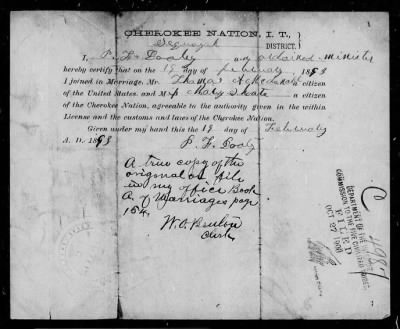 CHEROKEE NATION, I. T.,
Sequoyah DISTRICT.
I, P. L. an ordained minister
hereby certify that on the 19 day of 1893
I joined in Marriage, Mr. Thomas a citizen
of the United States, and M Skate a citizen
of the Cherokee Nation, agreeable to the authority given in the within
License and the customs and laws of the Cherokee Nation.
Given under my hand this the 19 day of
A. D. 1893 P. L.
A true copy of the
original on file
in my office Book
A. of Marriages page
154.
W. O.
Clerk
DEPARTMENT OF THE INTERIOR,
COMMISSION TO THE FIVE CIVILIZED TRIBES.
FILED
OCT 27 1900